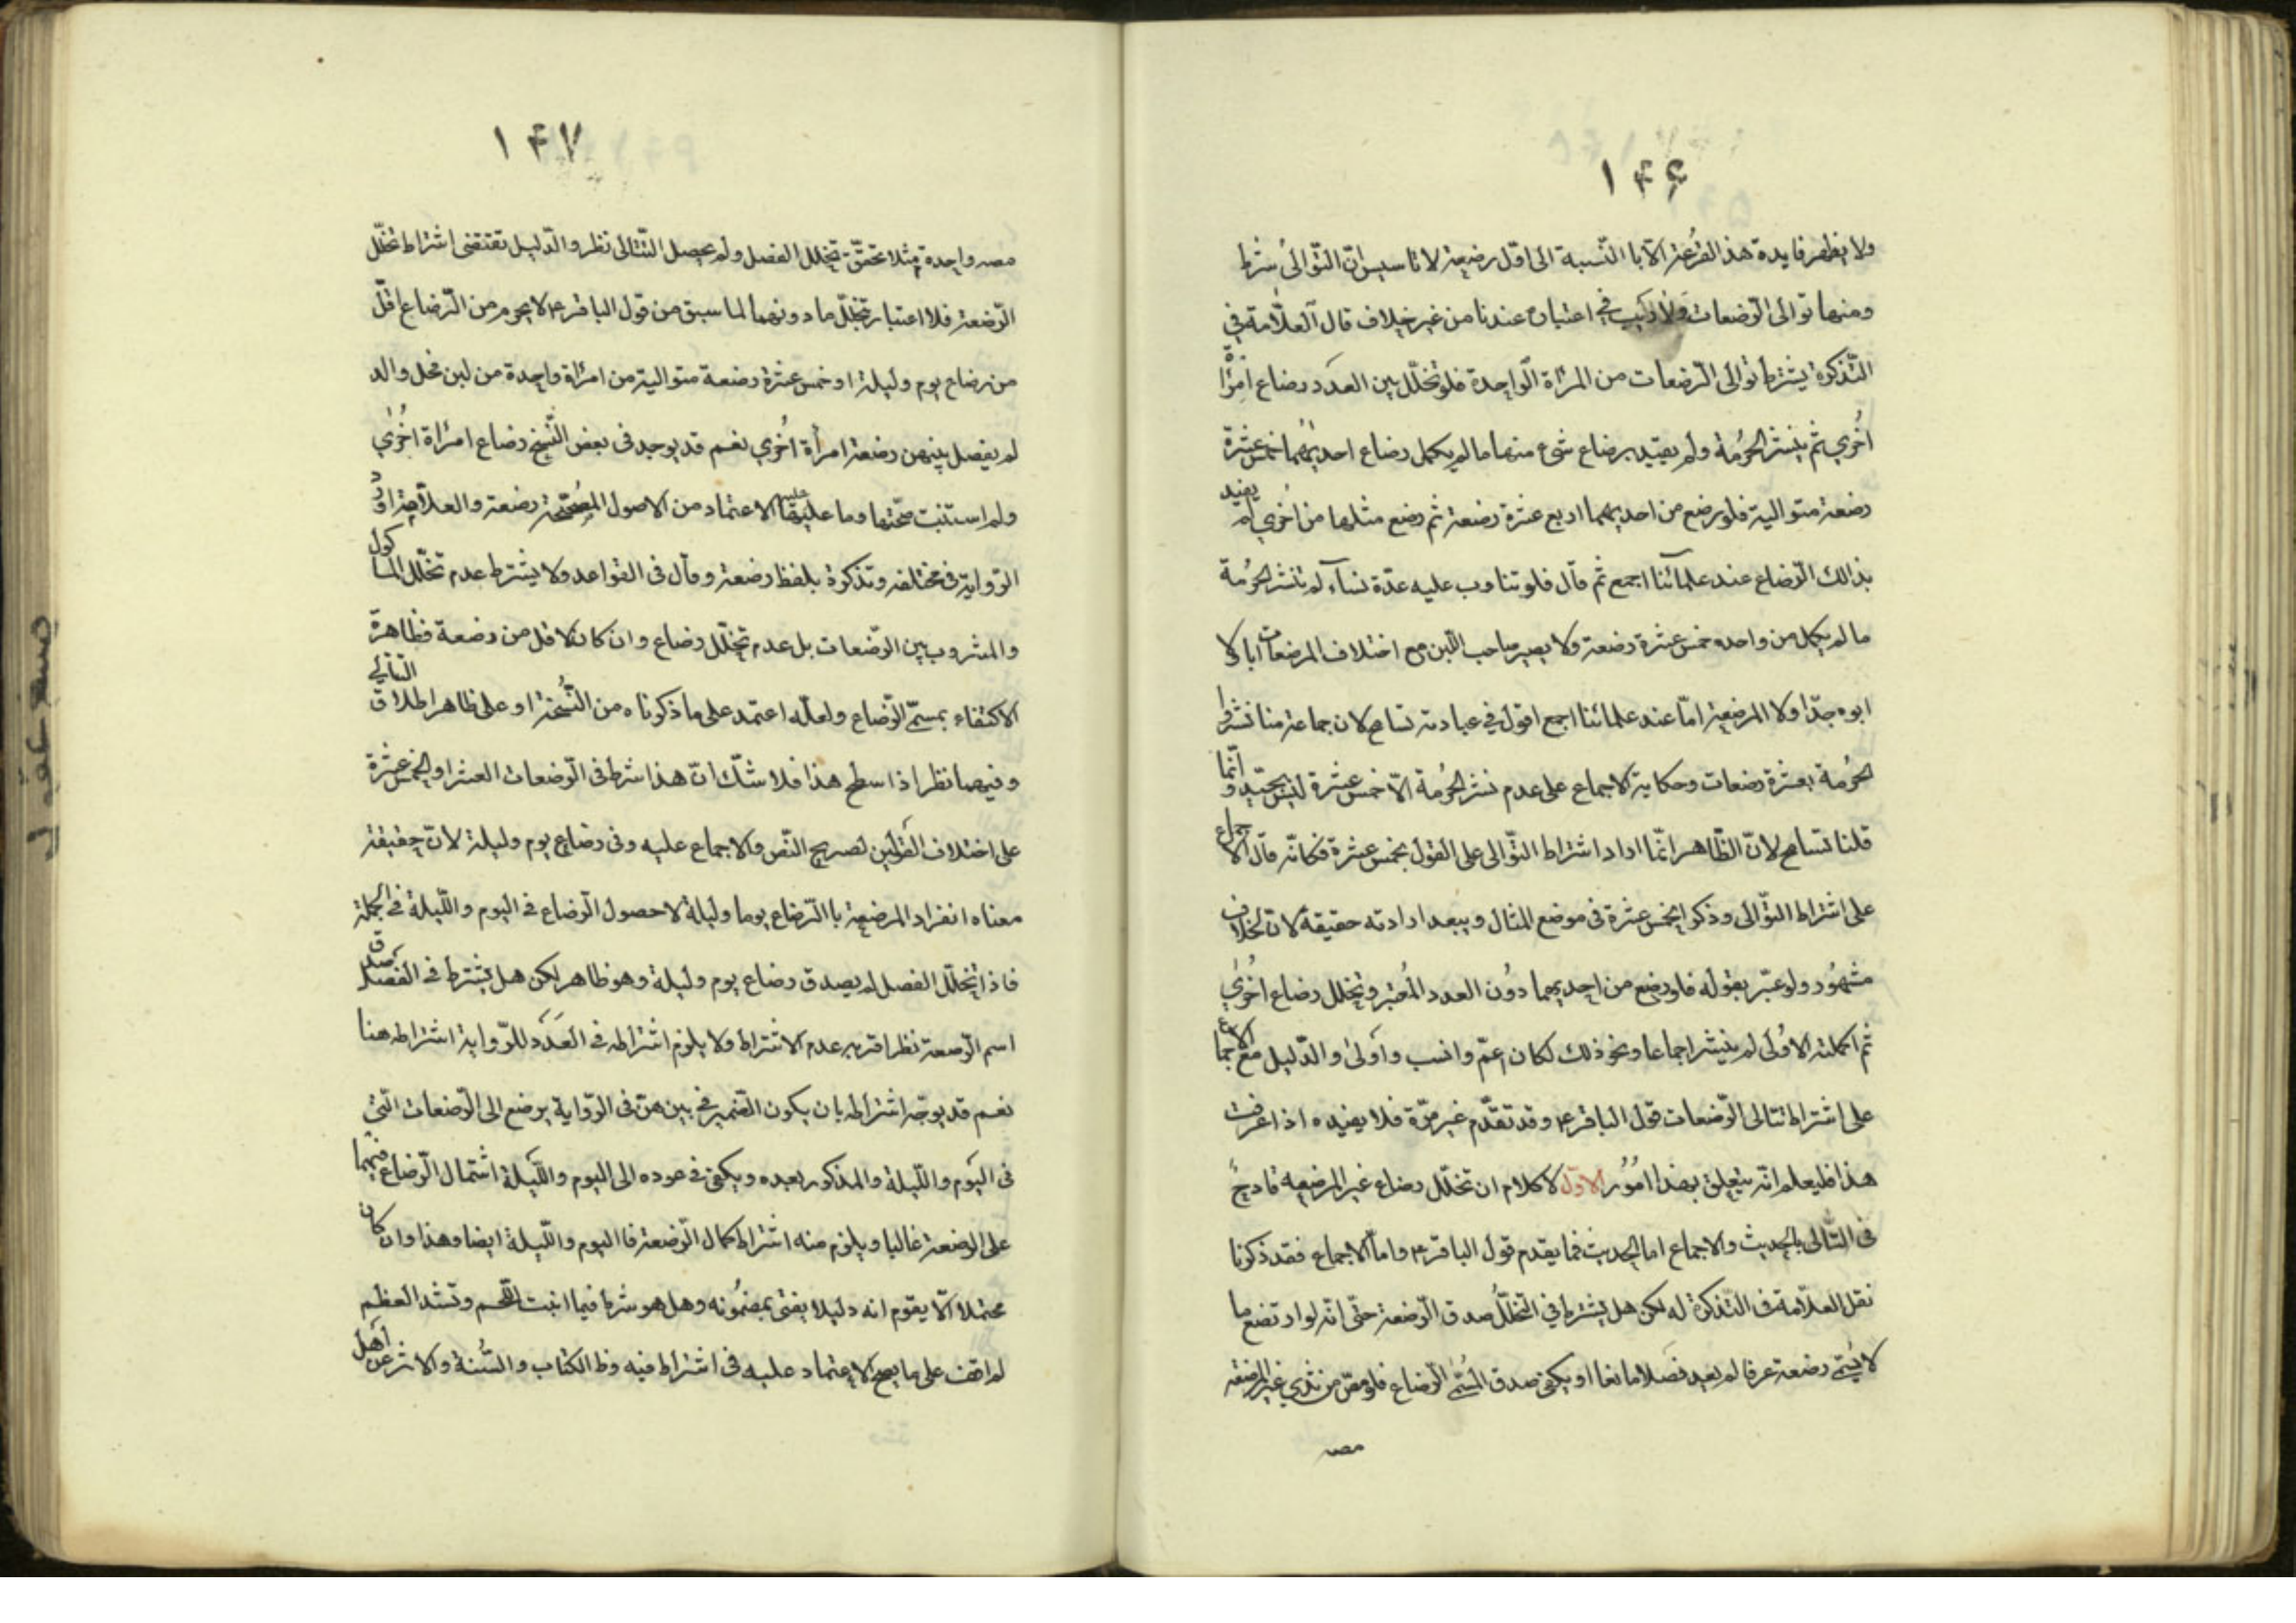 ۱۴۶
ولا یظهر فایدة هذ الفرعیة الّا با النّسبة الی اوّل رضعیة لا تاسیس انّ التّوالیُ شرط
ومنها توالی الرّضعات ولا ریب فی اعتباره عندنا من غیر خلاف قال العلّامة فی
التّذکرة یشترط توالی الرّضعات من المرأة الواحدة فلو تخلّل بین العدد رضاع امرأة
اُخری ثم ینشر الحرُمة ولم یقید برضاع شیء منها ما لم یکمل رضاع احدیهما خمس عشرة
رضعة متوالیة فلو رضع من احدیهما اربع عشرة رضعة ثم رضع مثلها من اخری لم یفید
بذالک الرّضاع عند علمائنا اجمع ثم قال فلو تناوب علیه عدّة نساء لم تنشر الحرُمة
ما لم یکمل من واحده خمس عشرة رضعة ولا یصیر صاحب اللّبن مع اختلاف المرضعات ابا ولا
ابوه جدّا ولا المرضعة امّا عند علمائنا اجمع اقول فی عبارته تسامح لان جماعة منا نشروا
الحرُمة بعشرة رضعات وحکایة الاجماع علی عدم نشر الحرُمة الّا خمس عشرة لیس بجیّد و انّما
قلنا تسامح لانّ الظّاهر انّما اراد اشتراط التّوالی علی القول بخمس عشرة فکانّه قال الاجماع
علی اشتراط التّوالی وذکر الخمس عشرة فی موضع المثال ویبعد ارادته حقیقة لان الخلاف
مشهُور ولو عبّر بقوله فلو رضع من احدیهما دوُن العدد المُعتبر وتخلل رضاع اُخری
ثم اکملته الاوُلی لم ینشر اجماعا ونحو ذلک لکان اعمّ وانسب واَولیٰ والدّلیل مع الاجماع
علی اشتراط تتالی الرّضعات قول الباقر ع وقد تقدّم غیر مرّة فلا یفیده اذا عرفت
هذا فلیعلم انّه یتعلق بهذا اموُر الاوّل لا کلام ان تخلّل رضاع غیر المرضعه قادحٌ
فی التّتالی بالحدیث والاجماع اما الحدیث فما یقدم قول الباقر ع واما الاجماع فقد ذکرنا
نقل العلّامة فی التّذکرة له لکن هل یشترط فی التخلّل صدق الرّضعة حتّی انّه لو ارتضع ما
لا یُسمّی رضعة عرفا لم یعد فصَلا مانعا او یکفی صدق المُسمّی الرّضاع فلو مصّ من ثدی غیر المرضعة
مصه
۱۴۷
مصه واحدة مثلا تحقّق تخلل الفصل ولم یحصل التّتالی نظر والدّلیل تقتضی اشتراط تخلّل
الرّضعة فلا اعتبار بتخلّل ما دونها لما سبق من قول الباقر ع لا یحرم من الرّضاع اقلّ
من رضاع یوم ولیلة او خمس عشرة رضعة متوالیة من امرأة واحدة من لبن فحل واحد
لم یفصل بینهن رضعة امرأة اُخری نعم قد یوجد فی بعض النّسخ رضاع امرأة اُخریٰ
ولم استثبت صحّتها وما علیها الاعتماد من الاصول المصُحّحة رضعة والعلّامة اورد
الرّوایة فی مختلفه وتذکرة بلفظ رضعة وقال فی القواعد ولا یشترط عدم تخلّل الماکول
والمشروب بین الرّضعات بل عدم تخلّل رضاع وان کان لاقل من رضعة فظاهرة
الاکتفاء بمسمّی الرّضاع ولعلّه اعتمد علی ما ذکرناه من النُّسخة او علی ظاهر اطلاق التتالی
وفیهما نظر اذا سطح هذا فلا شکّ انّ هذا شرط فی الرّضعات العشر او الخمس عشرة
علی اختلاف القولَین لصریح النّص والاجماع علیه وفی رضاع یوم ولیلة لانّ حقیقة
معناه انفراد المرضعة با الرّضاع یوما ولیلة لا حصول الرّضاع فی الیوم واللّیلة فی الجملة
فاذا تخلّل الفصل لم یصدق رضاع یوم ولیلة وهو ظاهر لکن هل یشترط فی الفصل صدق
اسم الرّضعة نظر اقربه عدم الاشتراط ولا یلزم اشتراطه فی العَدَد للرّوایة اشتراطه هنا
نعم قد یوجّه اشتراطه بان یکون الضّمیر فی بینهنّ فی الرّوایة یرجع الی الرّضعات الّتی
فی الیوم واللّیلة والمذکور بعیده ویکفی فی عوده الی الیوم واللّیلة اشتمال الرّضاع فیهما
علی الرضعة غالبا ویلزم منه اشتراط کمال الرّضعة فی الیوم واللّیلة ایضا وهذا وان کان
محتملا الّا یقوم انه دلیلا یفتی بمضمُونه وهل هو شرط فیما انبت اللّحم وتشد العظم
لم اقف علی ما یصح الاعتماد علیه فی اشتراط فیه وظ الکتاب والسُّنة والاثر عن اهل